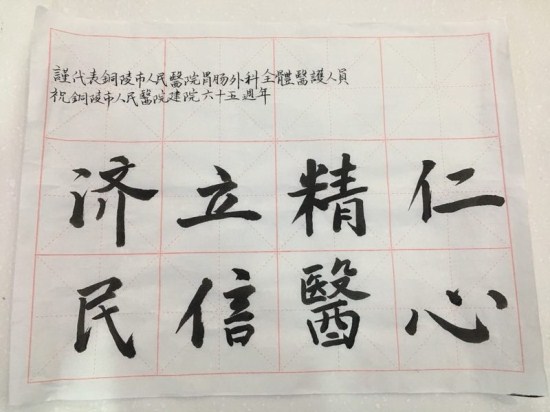 謹代表銅陵市人民醫院胃肠外科全體醫護人員
祝銅陵市人民醫院建院六十五週年
仁心
精醫
立信
济民